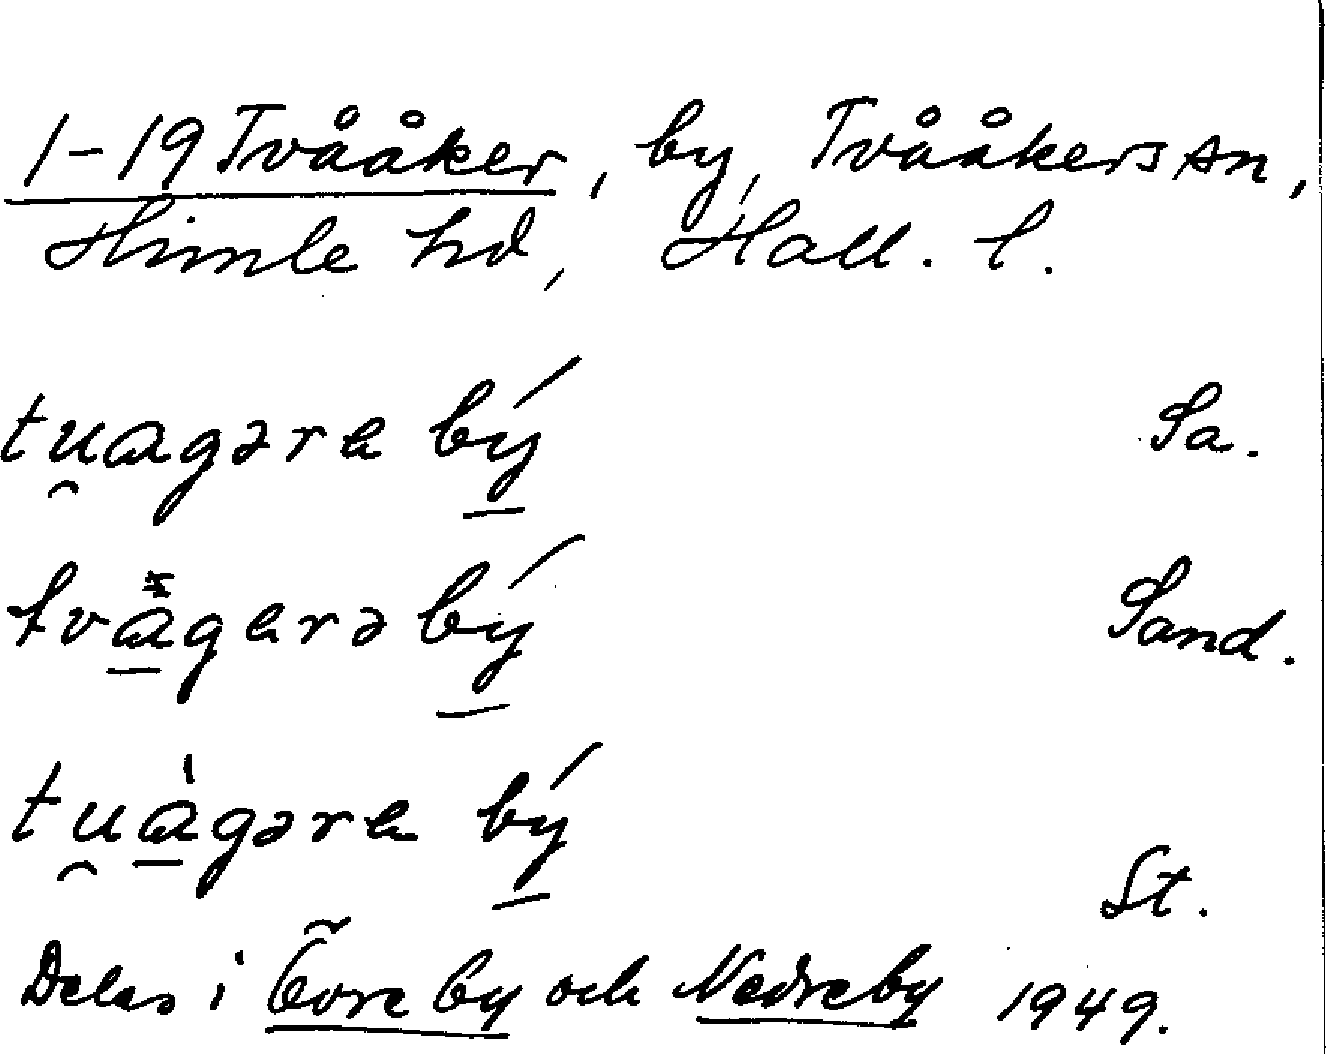 1-19 Tvååker, by, Tvååkers sn,
Himle hd, Hall. l.
tu̯agəra bý Sa.
tvågarə bý Sand.
tu̯àgəra bý
St.
Delas i Övre by och Nedreby 1949.